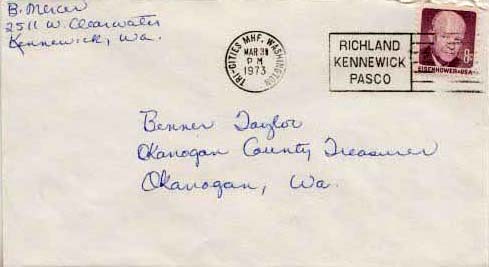 B. Mercer
2511 W. Clearwater
Kennewick, Wa.
TRI-CITIES MHF. WASHINGTON
MAR 31
PM
1973
RICHLAND
KENNEWICK
PASCO
8c
EISENHOWER·USA
Benner Taylor
Okanogan County Treasurer
Okanogan, Wa.